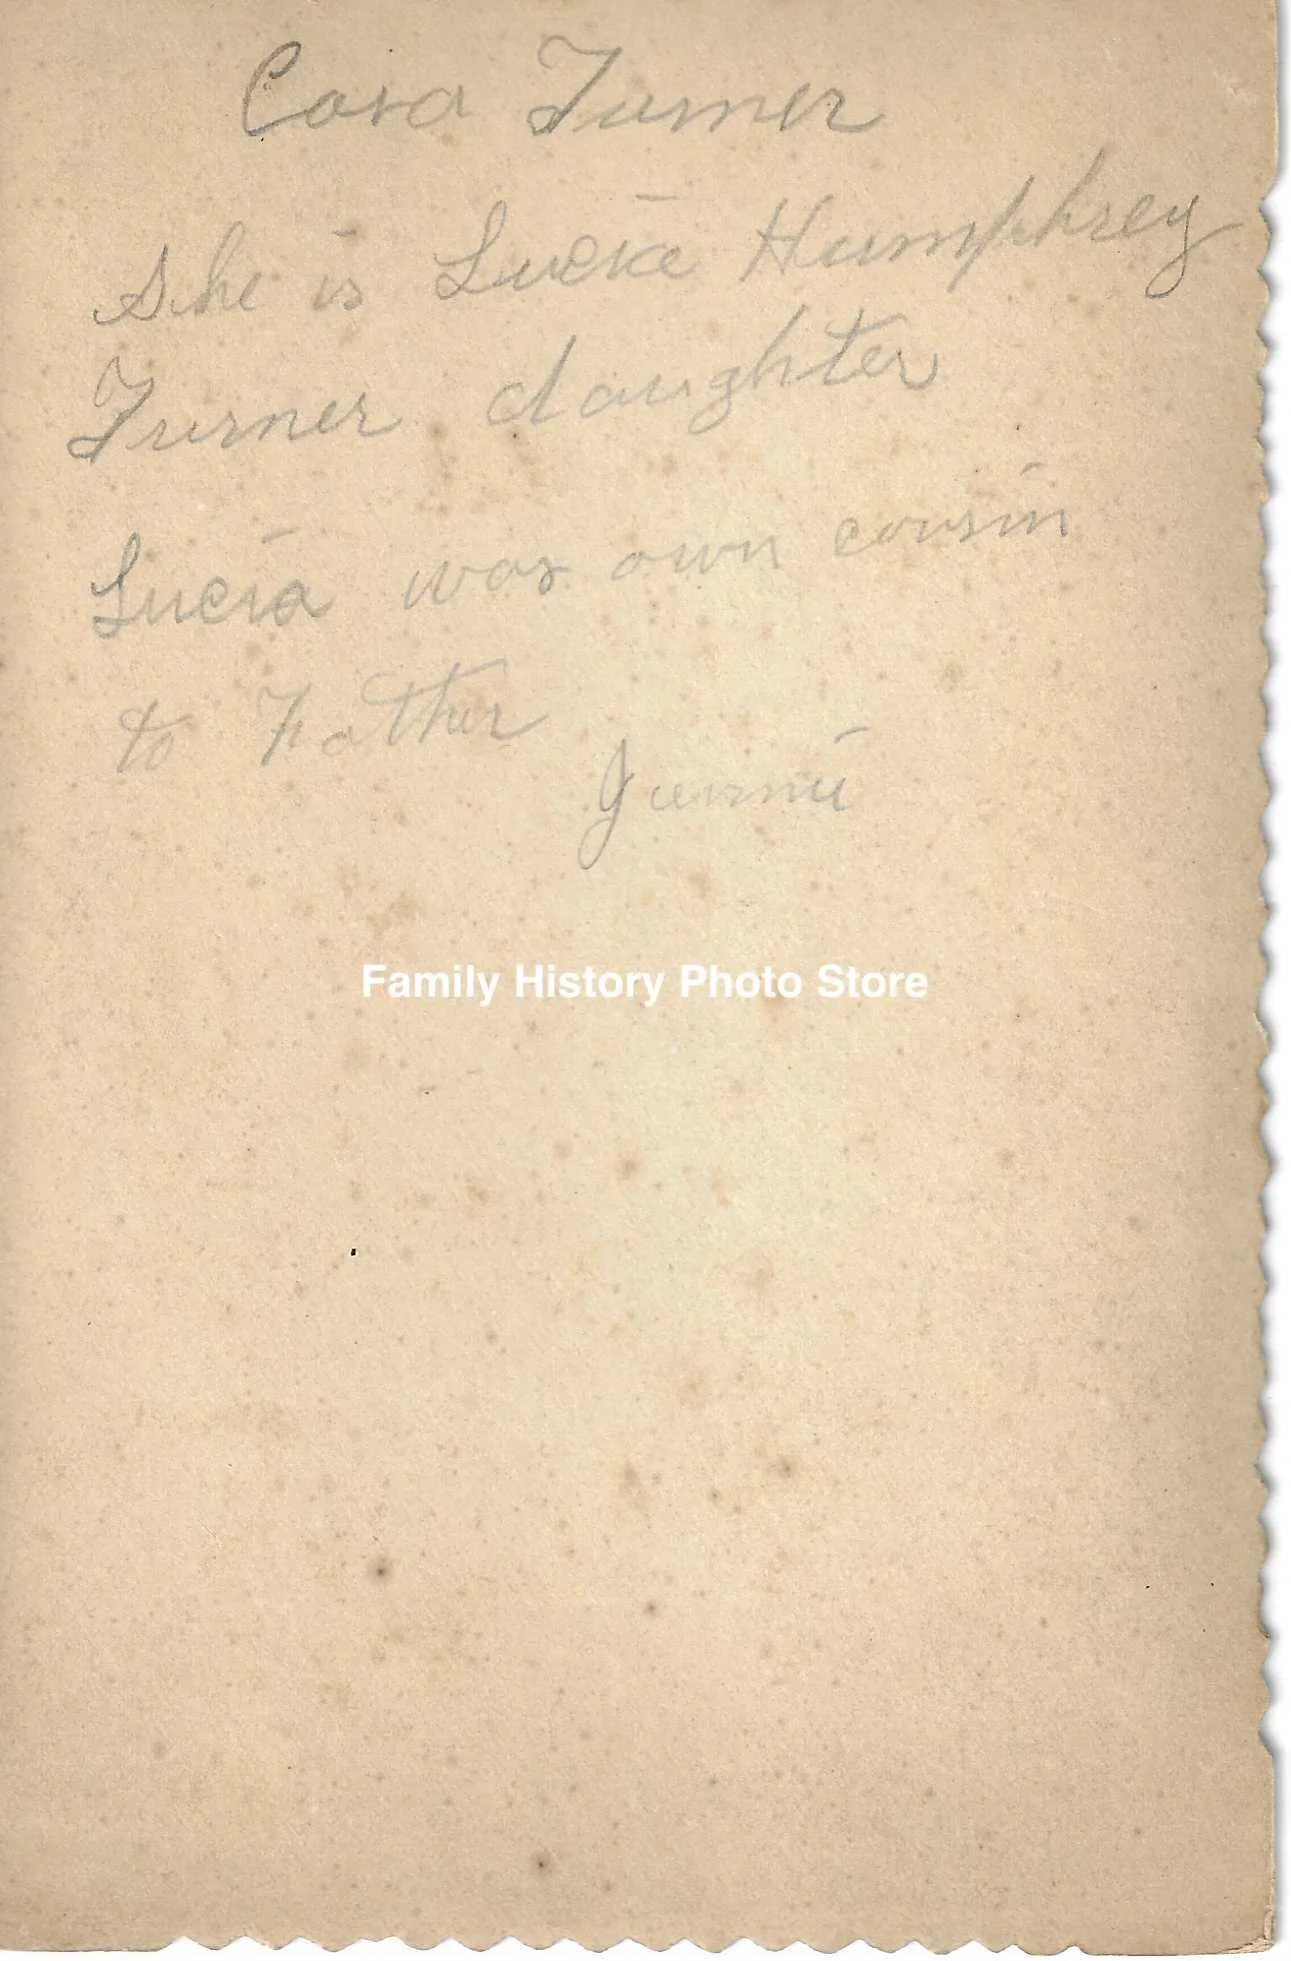 Cora Turner
She is Lucia Humphrey
Turner daughter
Lucia was own cousin
to Father
Family History Photo Store